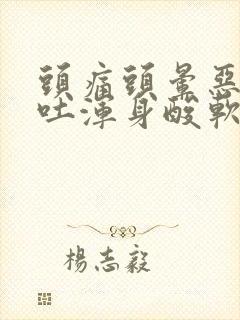 頭痛頭暈惡
吐渾身酸軟
楊志毅